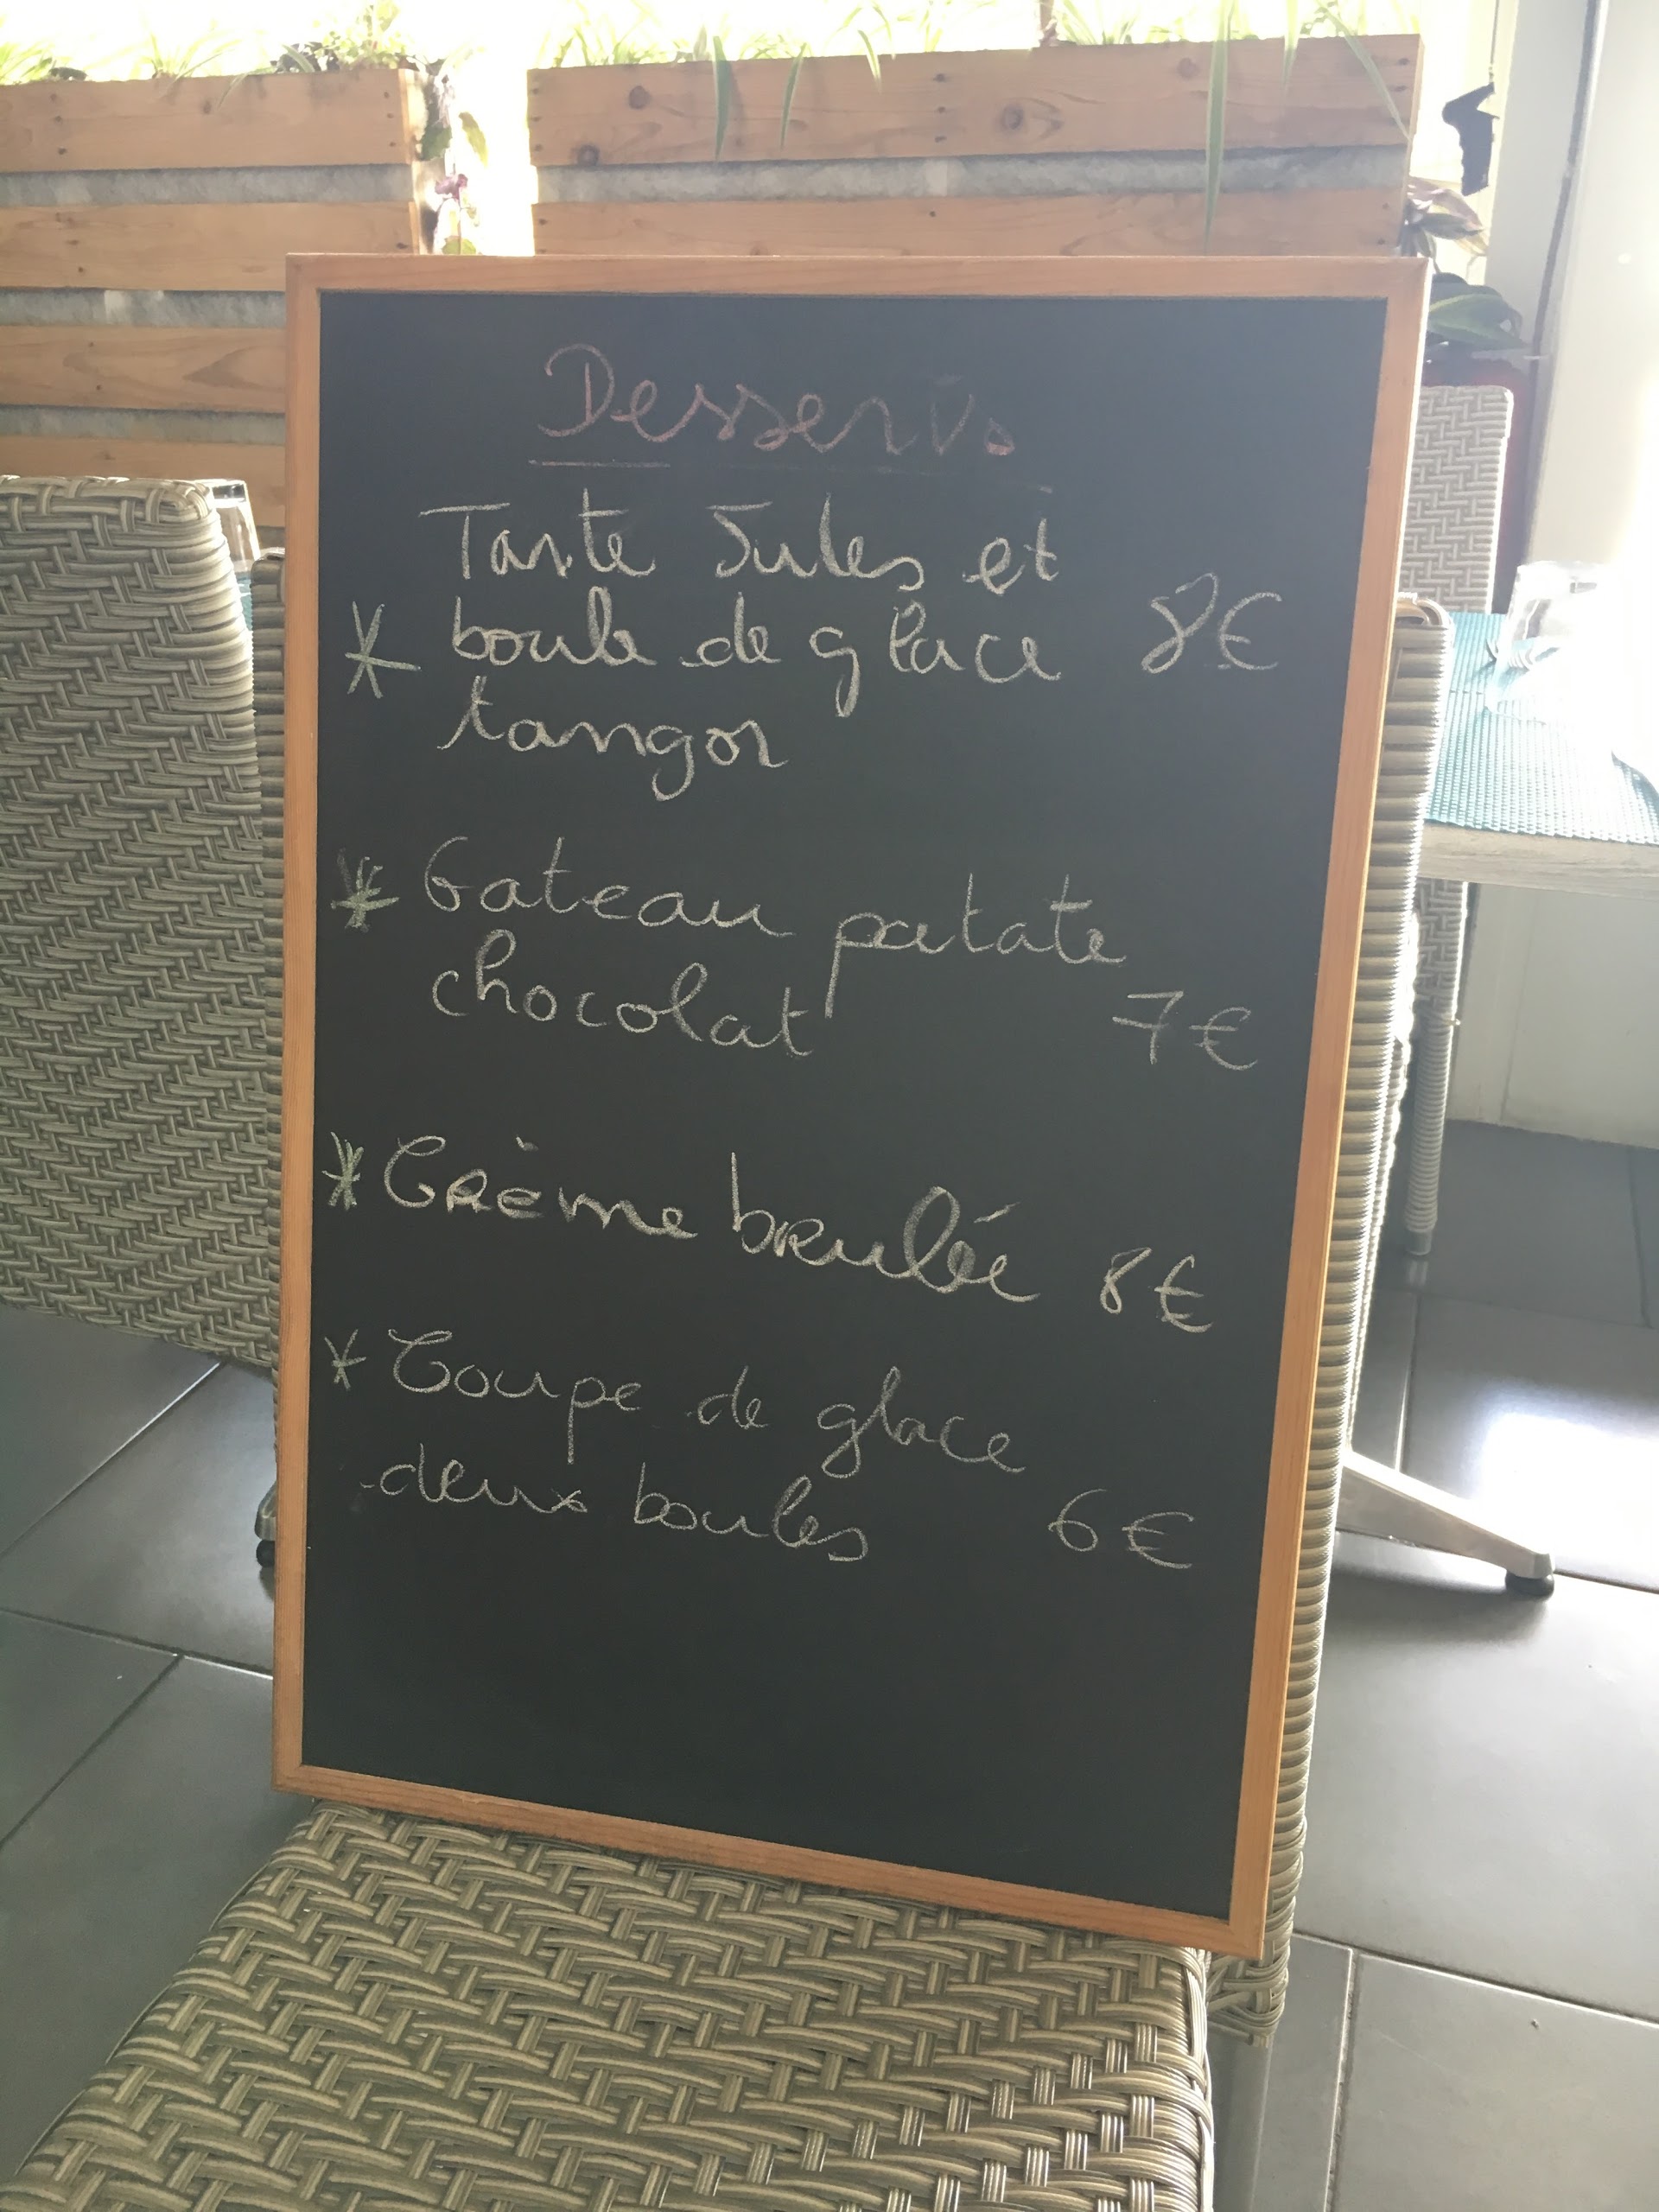 Desserts
Tarte Jules et
* boule de glace 8€
tangor
* Gateau patate
chocolat 7€
* Crème brulée 8€
* Coupe de glace
deux boules 6€